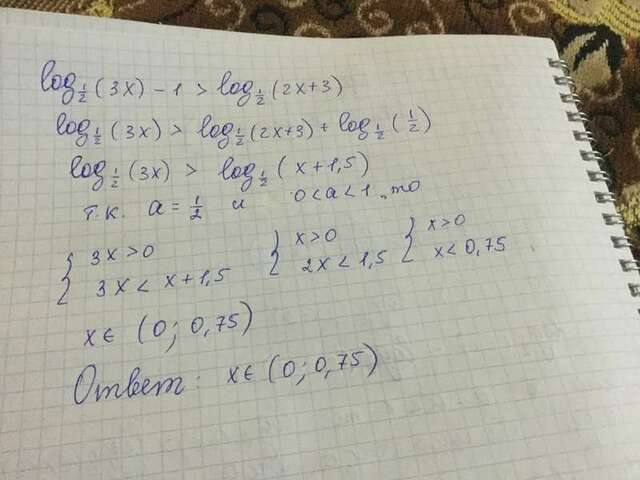 log½(3x) - 1 > log½(2x+3)
log½(3x) > log½(2x+3) + log½(½)
log½(3x) > log½(x+1,5)
т.к. a = ½ и 0<a<1, то
{ 3x>0 { x>0 { x>0
3x< x+1,5 2x<1,5 x<0,75
x∈ (0; 0,75)
Ответ: x∈ (0; 0,75)